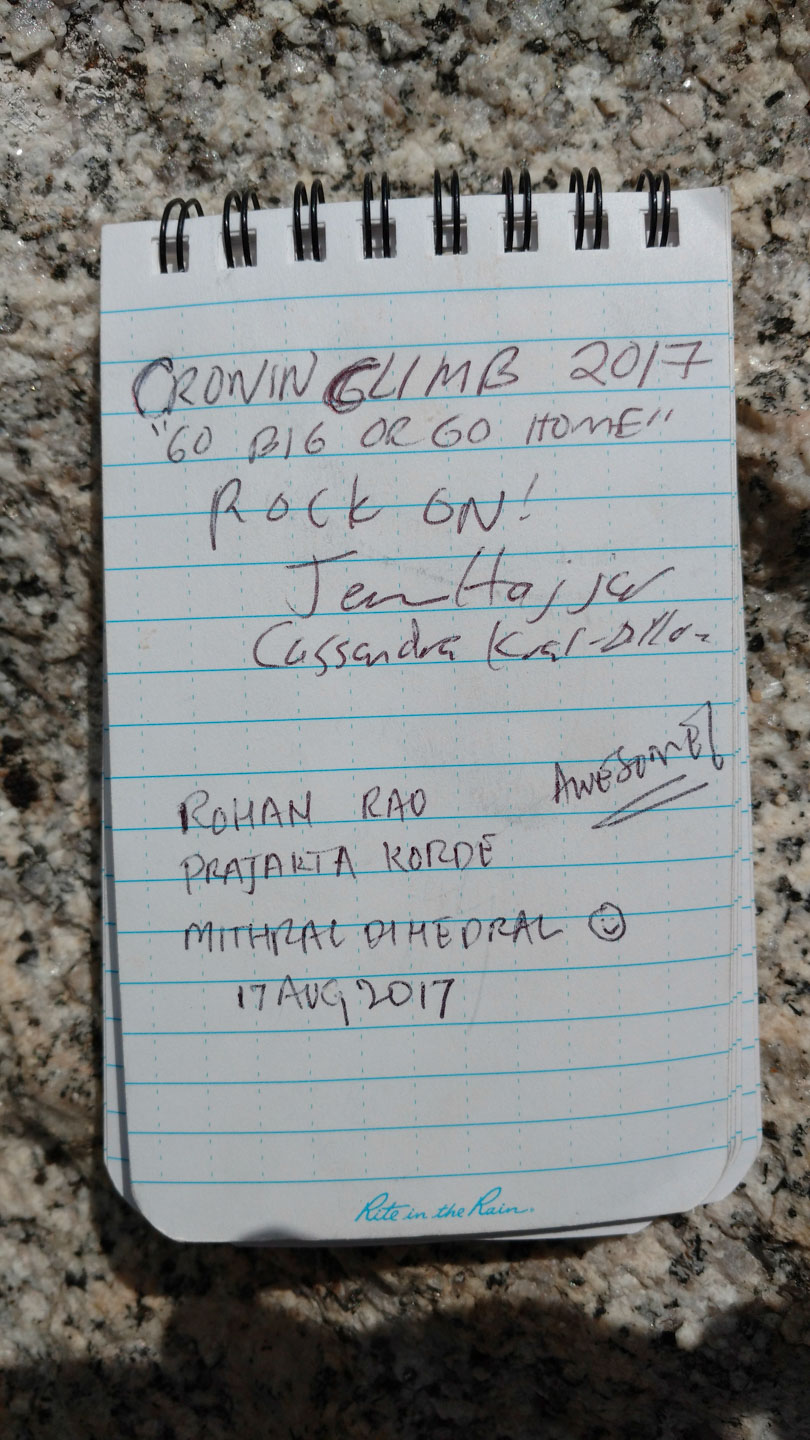 CRONIN CLIMB 2017
"GO BIG OR GO HOME"
ROCK ON!
Jenn Hajjar
Cassandra Kral-Dillon
AWESOME!
ROHAN RAO
PRAJAKTA KORDE
MITHRAL DIHEDRAL
17 AUG 2017
Rite in the Rain.